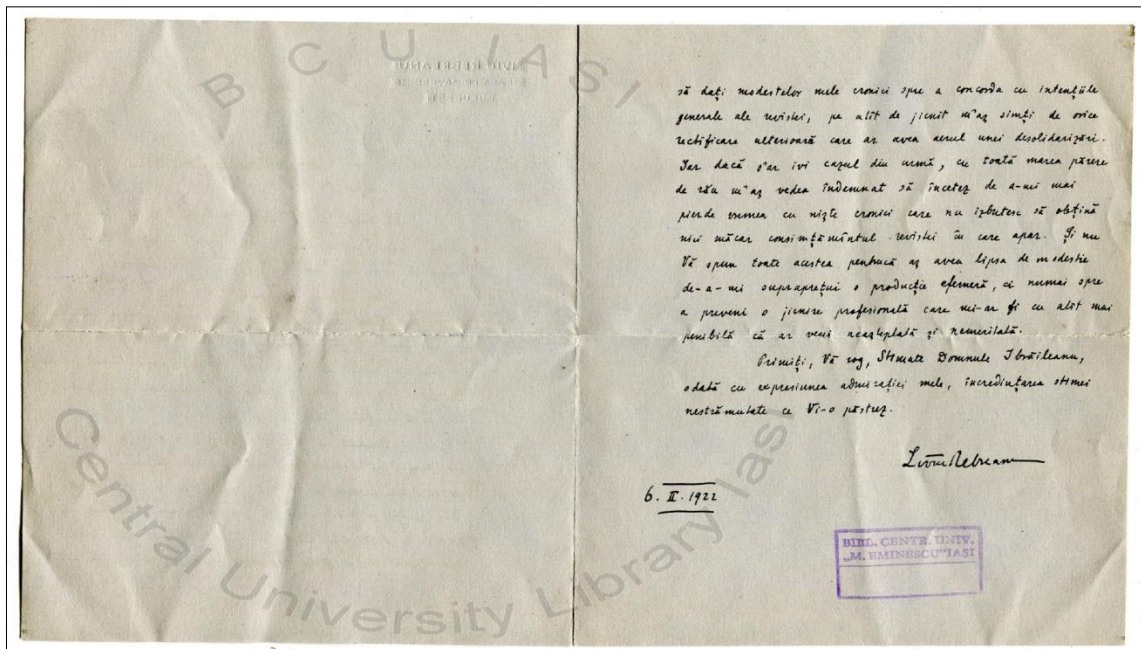 să dați modestelor mele cronici spre a concorda cu intențiile
generale ale revistei, pe atît de jicnit m'aș simți de orice
rectificare ulterioară care ar avea aerul unei desolidarizări.
Iar dacă s'ar ivi cazul din urmă, cu toată marea părere
de rău m'aș vedea îndemnat să încetez de a-mi mai
pierde vremea cu niște cronici care nu izbutesc să obțină
nici măcar consimțămîntul revistei în care apar. Și nu
Vă spun toate acestea pentrucă aș avea lipsa de modestie
de-a-mi supraprețui o producție efemeră, ci numai spre
a preveni o jicnire profesională care mi-ar fi cu atît mai
penibilă că ar veni neașteptată și nemeritată.
Primiți, Vă rog, Stimate Domnule Ibrăileanu,
odată cu expresiunea admirației mele, încredințarea stimei
nestrămutate ce Vi-o păstrez.
Liviu Rebreanu
6. II. 1922
BIBL. CENTR. UNIV.
„M. EMINESCU" IAȘI
B C U IASI
Central University Library Iasi